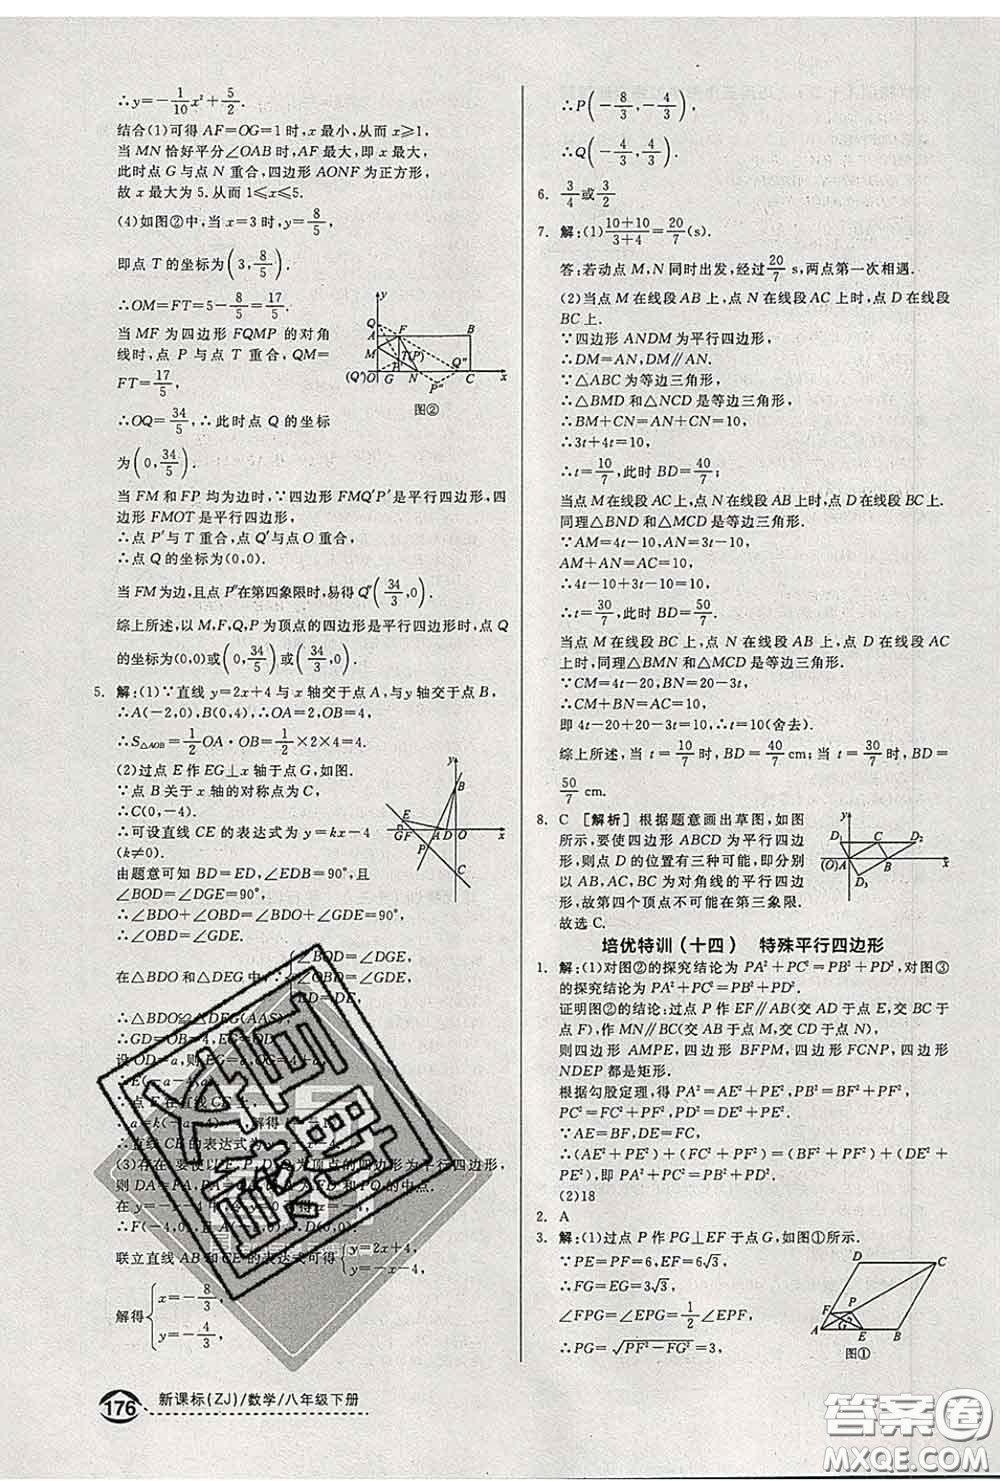 ∴y=-1/10x²+5/2.
结合(1)可得 AF=OG=1时,x最小,从而x≥1,
当 MN 恰好平分∠OAB时,AF最大,即x最大,
此时点 G 与点 N 重合,四边形 AONF 为正方形,
故x最大为5.从而1≤x≤5.
(4)如图②中,当x=3时,y=8/5,
即点 T 的坐标为(3,8/5).
∴OM=FT=5-8/5=17/5.
当 MF 为四边形 FQMP 的对角
线时,点 P 与点 T 重合,QM=
FT=17/5,
∴OQ=34/5,∴此时点 Q 的坐标
为(0,34/5).
y
Q
A F B
M T(P) Q″
(Q′)O G N C x
P″
图②
当 FM 和 FP 均为边时,∵四边形 FMQ′P′是平行四
边形,四边形 FMOT 是平行四边形,
∴点 P′与点 T 重合,点 Q′与点O重合,
∴点 Q 的坐标为(0,0).
当FM为边,且点P″在第四象限时,易得Q″(34/3,0).
综上所述,以M,F,Q,P为顶点的四边形是平行四边形时,点 Q
的坐标为(0,0)或(0,34/5)或(34/3,0).
5. 解:(1)∵直线y=2x+4与x轴交于点A,与y轴交于点B,
∴A(-2,0),B(0,4),∴OA=2,OB=4,
∴S△AOB=1/2OA·OB=1/2×2×4=4.
(2)过点 E 作EG⊥x 轴于点G,如图.
∵点 B 关于x 轴的对称点为 C,
∴C(0,-4).
∴可设直线 CE 的表达式为 y=kx-4
(k≠0).
由题意可知 BD=ED,∠EDB=90°,且
∠BOD=∠EGD=90°,
∴∠BDO+∠OBD=∠BDO+∠GDE=90°,
∴∠OBD=∠GDE.
y
B
E
GF A D O x
P
C
在△BDO和△DEG中,∵{∠BOD=∠DGE,
∠OBD=∠GDE,
BD=DE,
∴△BDO≌△DEG(AAS).
∴GD=OB=4,EG=OD.
设 OD=a,则 EG=
∴E(-a-4,a).
∵点 E 在直线 CE 上,
∴a=k(-a-4)-4,解得
∴直线 CE 的表达式为y=-x-4.
(3)存在.要使以 E,P,D,Q 为顶点的四边形为平行四边形,
则 DA=PA,
在 y=-x-4 中,令 y=0
∴F(-4,0),
联立直线 AB 和 CE 的表达式可得{y=2x+4,
y=-x-4,
解得{x=-8/3,
y=-4/3,
176 新课标(ZJ)/数学/八年级下册
∴P(-8/3,-4/3),
∴Q(-4/3,4/3).
6. 3/4或3/2
7. 解:(1)(10+10)/(3+4)=20/7(s).
答:若动点 M,N 同时出发,经过20/7 s,两点第一次相遇.
(2)当点 M 在线段AB 上,点 N 在线段AC 上时,点 D 在线段
BC 上.
∵四边形 ANDM 为平行四边形,
∴DM=AN,DM∥AN.
∵△ABC 为等边三角形,
∴△BMD 和△NCD 是等边三角形,
∴BM+CN=AN+CN=10,
∴3t+4t=10,
∴t=10/7,此时 BD=40/7;
当点M在线段AC上,点N在线段AB上时,点D在线段BC上.
同理△BND 和△MCD 是等边三角形.
∵AM=4t-10,AN=AC=10,
AM+AN=AC=10,
∴4t-10+3t-10=10,
∴t=30/7,此时 BD=50/7;
当点 M 在线段 BC 上,点 N 在线段 AB上,点 D 在线段 AC
上时,同理△BMN 和△MCD 是等边三角形.
∵CM=4t-20,BN=20-3t,
∴CM=BN,
即 4t-20+20-3t=10,∴t=10(舍去).
综上所述,当 t=10/7时,BD=40/7 cm;当 t=30/7时,BD=
50/7 cm.
8. C [解析]根据题意画出草图,如图
所示,要使四边形 ABCD 为平行四边
形,则点 D 的位置有三种可能,即分别
以 AB,AC,BC 为对角线的平行四边
形,故第四个顶点不可能在第三象限.
故选 C.
y
D₁ C D₂
(O)A B x
D₃
培优特训(十四) 特殊平行四边形
1. 解:(1)对图②的探究结论为 PA²+PC²=PB²+PD²,对图③
的探究结论为 PA²+PC²=PB²+PD².
证明图②的结论:过点 P 作EF∥AB(交 AD 于点E,交 BC 于
点 F),作 MN∥BC(交 AB 于点 M,交 CD 于点 N),
则四边形 AMPE,四边形 BFPM,四边形 FCNP,四边形
NDEP 都是矩形.
根据勾股定理,得 PA²=AE²+PE²,PB²=BF²+PF²,
PC²=FC²+PF²,PD²=DE²+PE².
∵AE=BF,DE=FC,
∴(AE²+PE²)+(FC²+PF²)=(BF²+PF²)+(DE²+PE²),
∴PA²+PC²=PB²+PD².
(2)18
2. A
3. 解:(1)过点 P 作 PG⊥EF 于点 G,如图①所示.
∵PE=PF=6,EF=6√3,
∴FG=EG=3√3,
∠FPG=∠EPG=1/2∠EPF,
∴PG=√(PF²-FG²)=3,
D C
F P
G
A E B
图①
答案圈
MXQE.COM